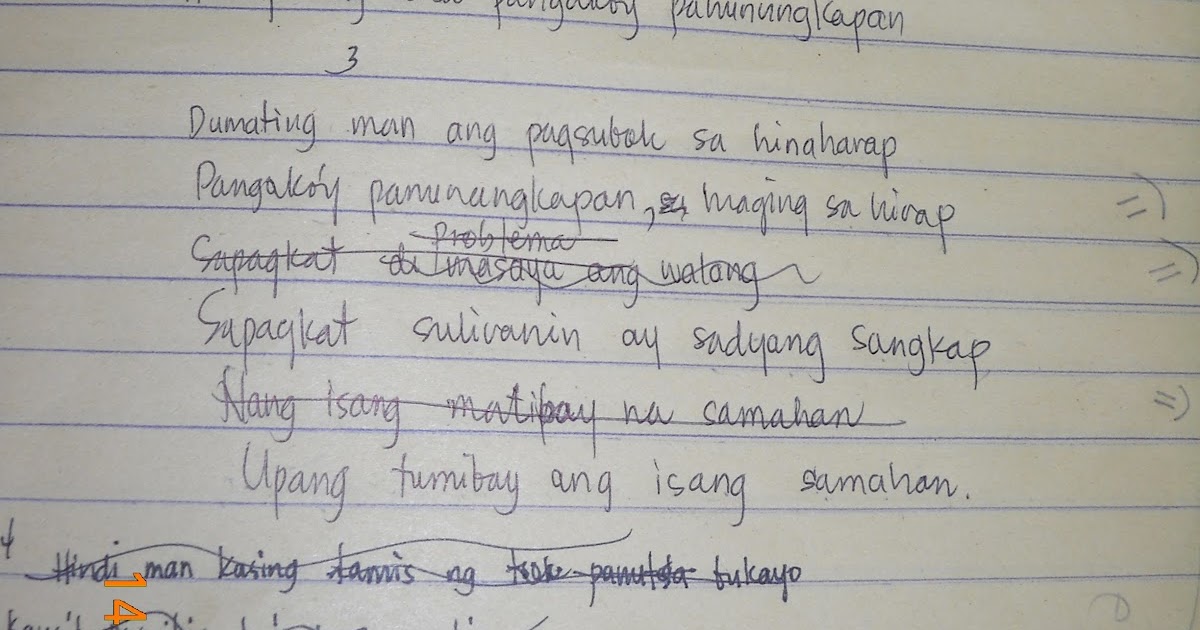 pangakoy panunungkapan
3
Dumating man ang pagsubok sa hinaharap
Pangakóy panunungkapan, maging sa hirap
Problema
Sapagkat di masaya ang walang
Sapagkat sulivanin ay sadyang sangkap
Nang isang matibay na samahan
Upang tumibay ang isang samahan.
4
Hindi man kasing tamis ng tukayo
14